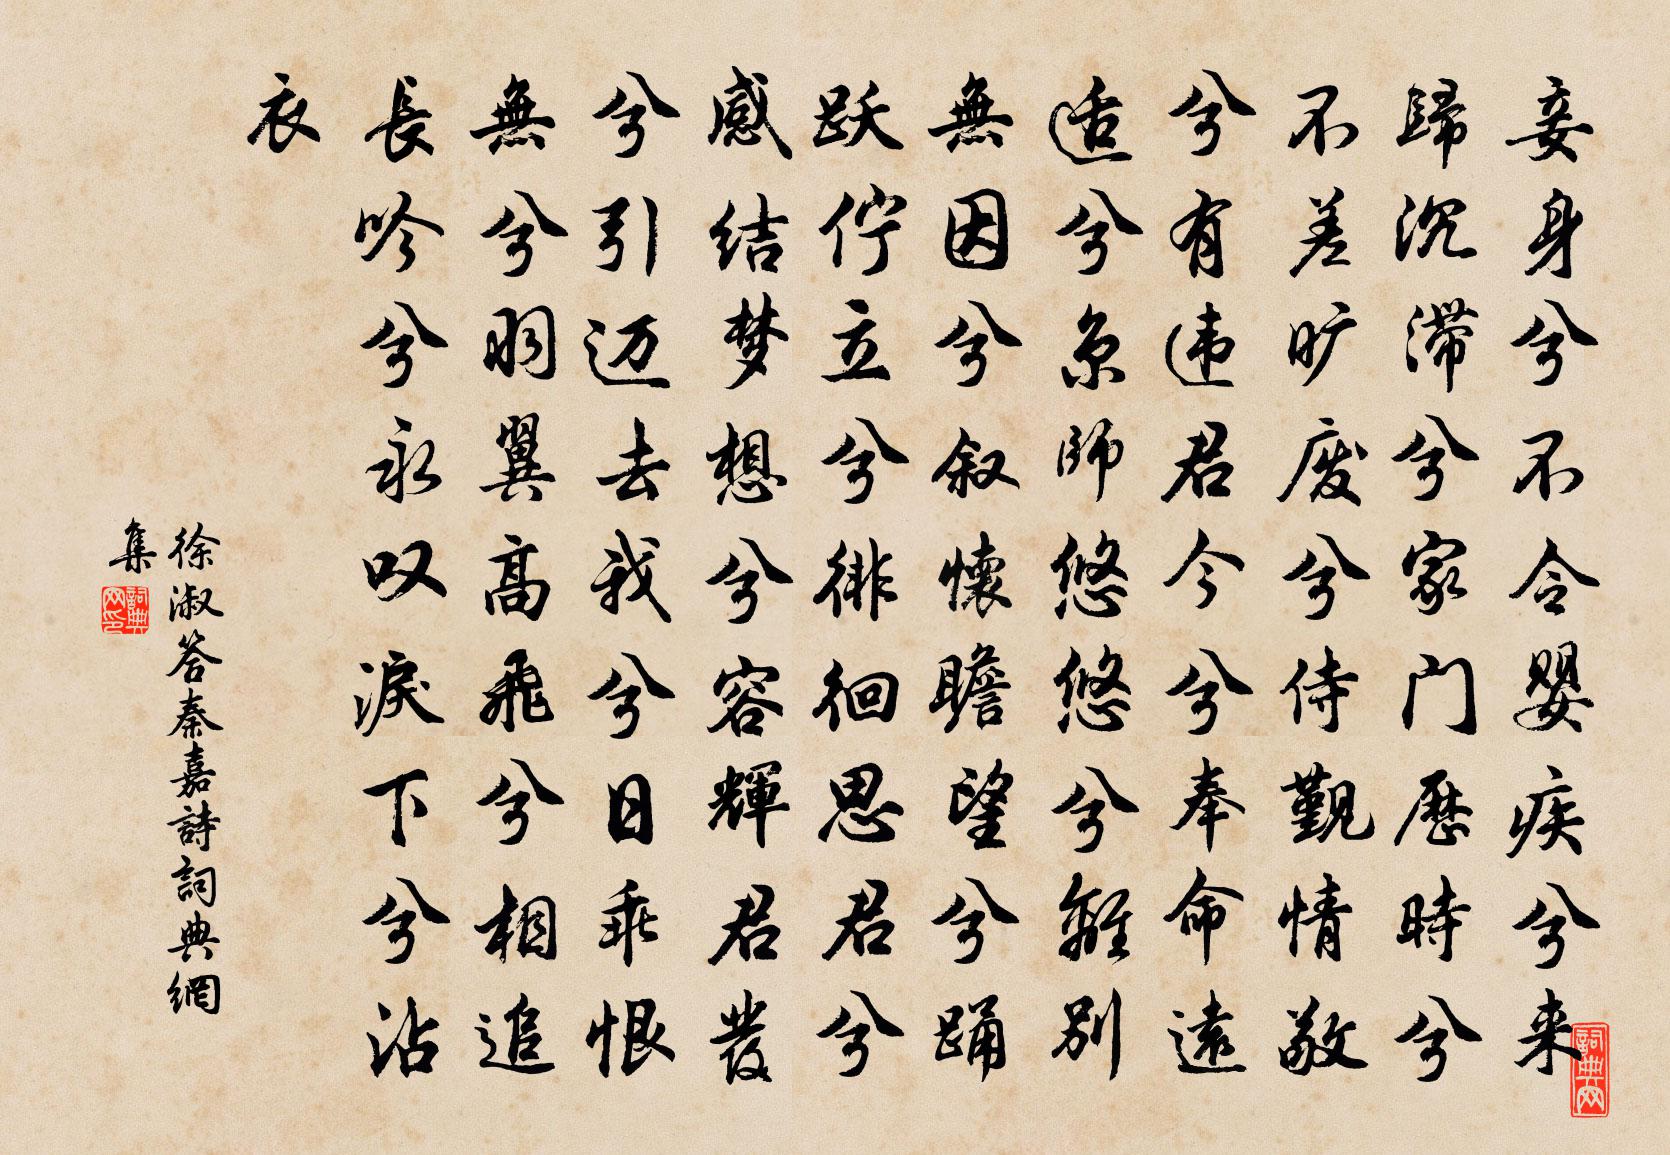 妾身兮不令嬰疾兮来
歸沉滞兮家门歷時兮
不差旷废兮侍觐情敬
兮有违君今兮奉命遠
适兮京师悠悠兮離别
無因兮叙懷瞻望兮踊
跃伫立兮徘徊思君兮
感结梦想兮容輝君發
兮引迈去我兮日乖恨
無兮羽翼高飛兮相追
長吟兮永叹淚下兮沾
衣
徐淑答秦嘉詩詞典網
集
詞典网
詞典网印